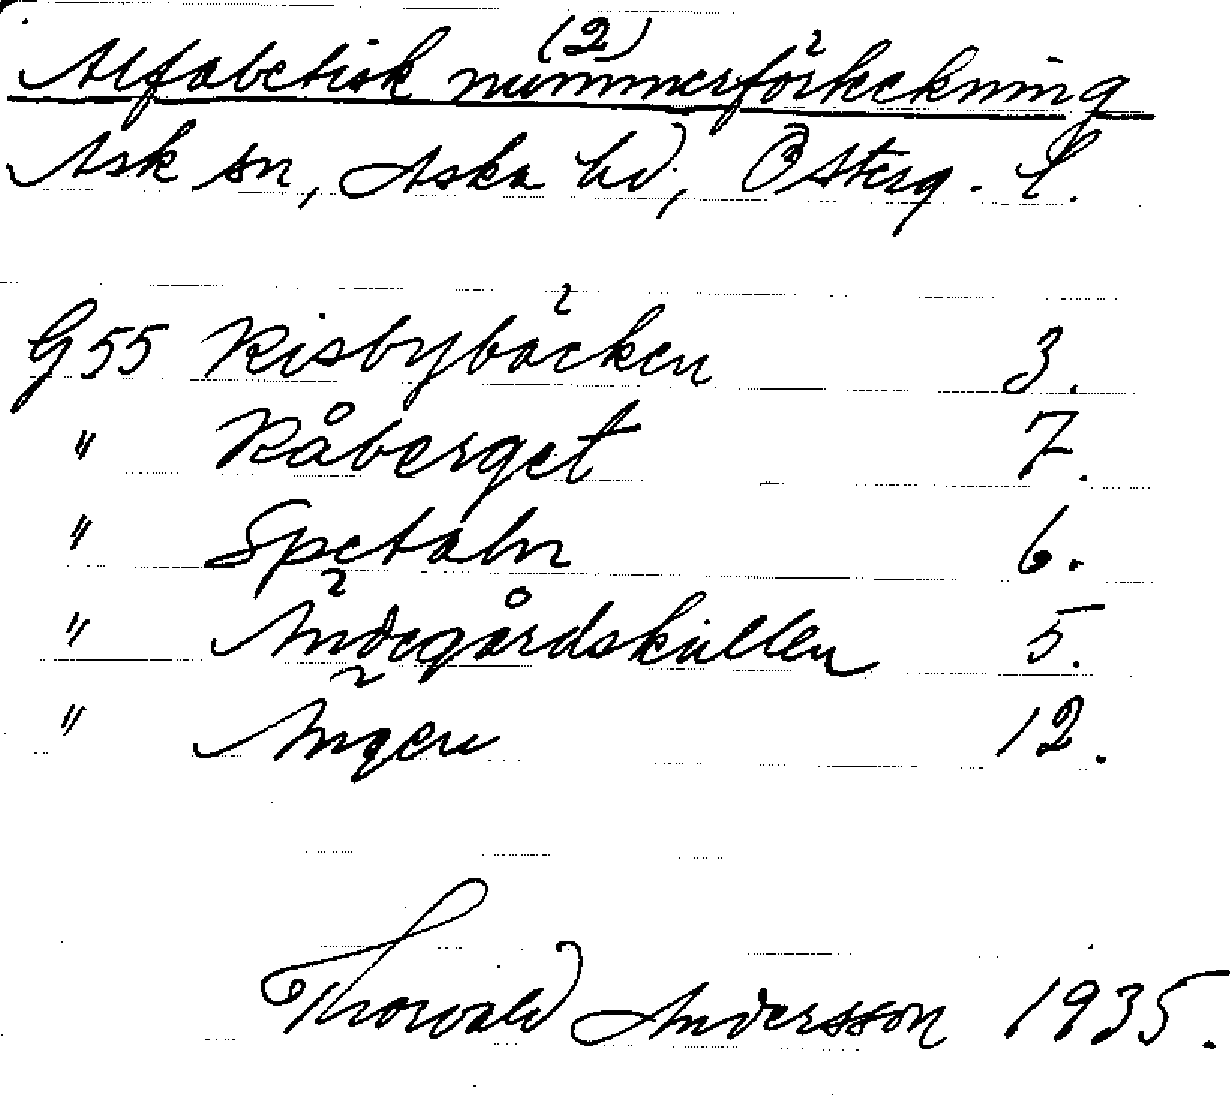 (2)
Alfabetisk nummerförteckning
Ask sn, Aska hd, Österg. l.
G55 Risbybäcken 3.
" Råberget 7.
" Spetaln 6.
" Ändegårdskällen 5.
" Ängen 12.
Thorvald Andersson 1935.